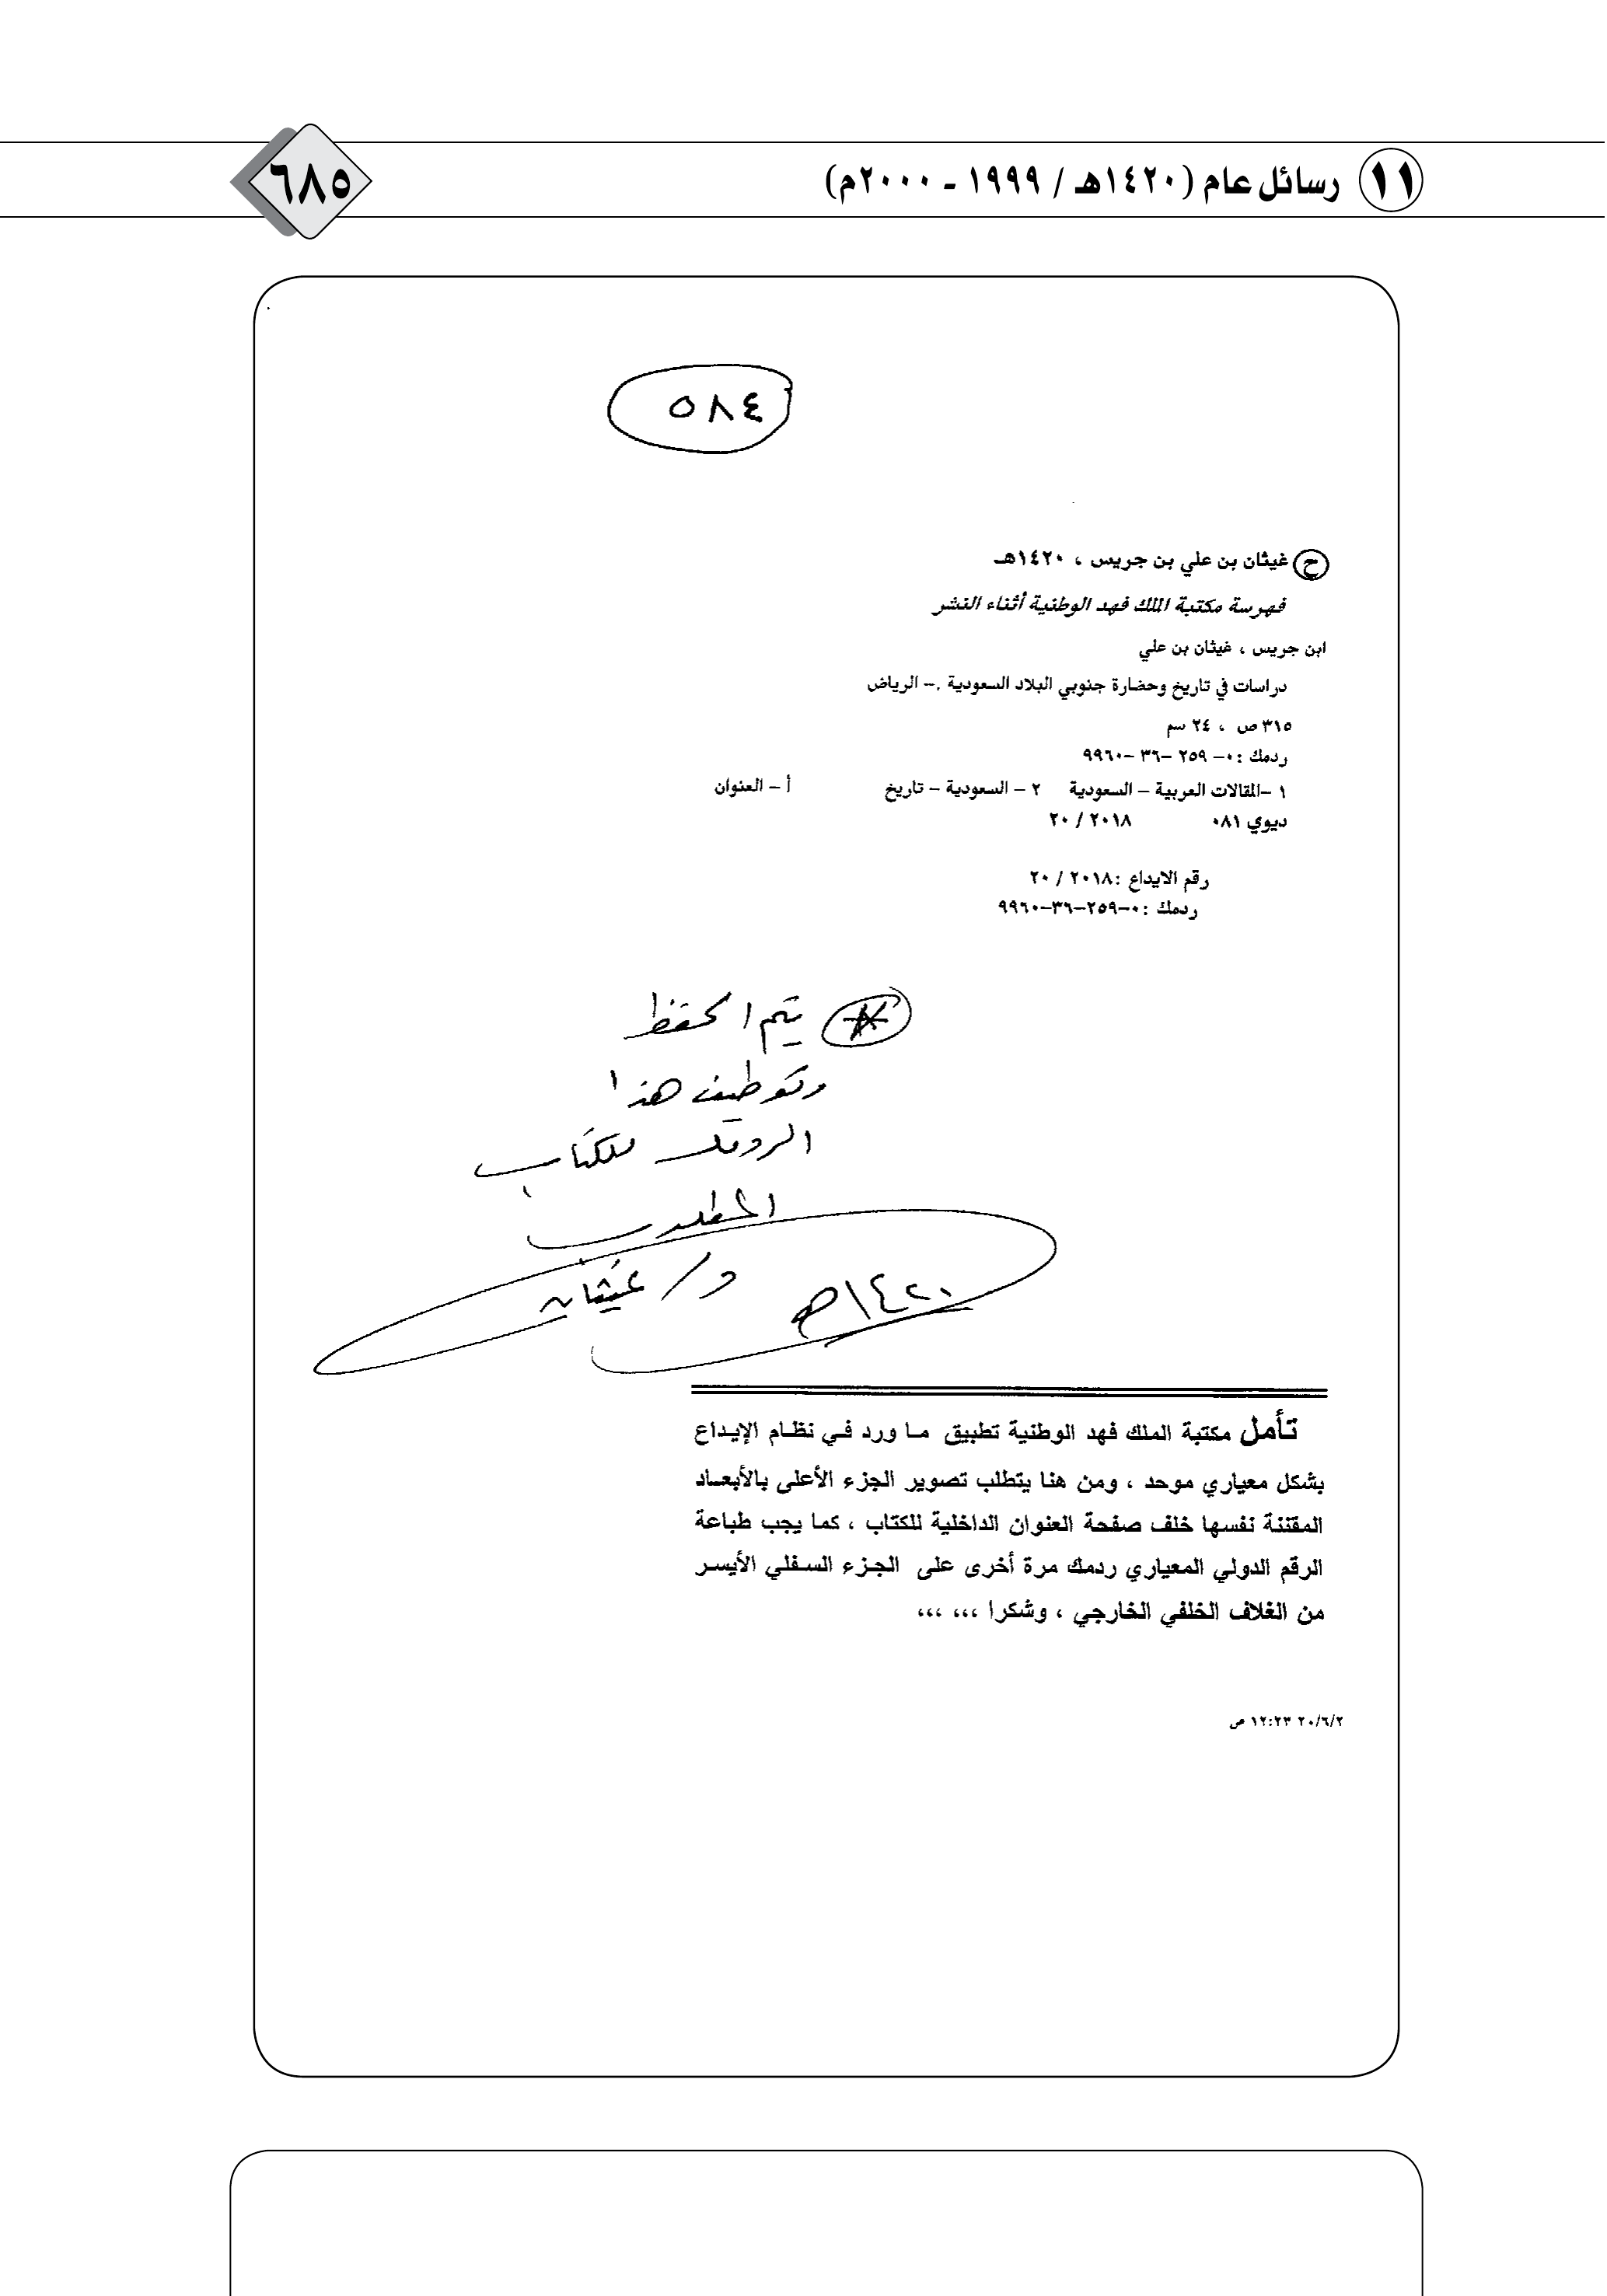 ١١ رسائل عام (١٤٢٠هـ / ١٩٩٩ - ٢٠٠٠م)
٦٨٥
٥٨٤
ح غيثان بن علي بن جريس ، ١٤٢٠هـ
فهرسة مكتبة الملك فهد الوطنية أثناء النشر
ابن جريس ، غيثان بن علي
دراسات في تاريخ وحضارة جنوبي البلاد السعودية .- الرياض
٣١٥ ص ، ٢٤ سم
ردمك :٠- ٢٥٩ -٣٦ -٩٩٦٠
١ -المقالات العربية - السعودية ٢ - السعودية - تاريخ أ - العنوان
ديوي ٠٨١ ٢٠١٨ / ٢٠
رقم الايداع :٢٠١٨ / ٢٠
ردمك :٠-٢٥٩-٣٦-٩٩٦٠
يتم الحفظ
وتوظيف هذا
للكتاب
المطلوب
د/ غيثان
١٤٢٠هـ
تأمل مكتبة الملك فهد الوطنية تطبيق ما ورد في نظام الإيداع
بشكل معياري موحد ، ومن هنا يتطلب تصوير الجزء الأعلى بالأبعاد
المقننة نفسها خلف صفحة العنوان الداخلية للكتاب ، كما يجب طباعة
الرقم الدولي المعياري ردمك مرة أخرى على الجزء السفلي الأيسر
من الغلاف الخلفي الخارجي ، وشكرا ،،، ،،،
٢٠/٦/٢ ١٢:٢٣ ص